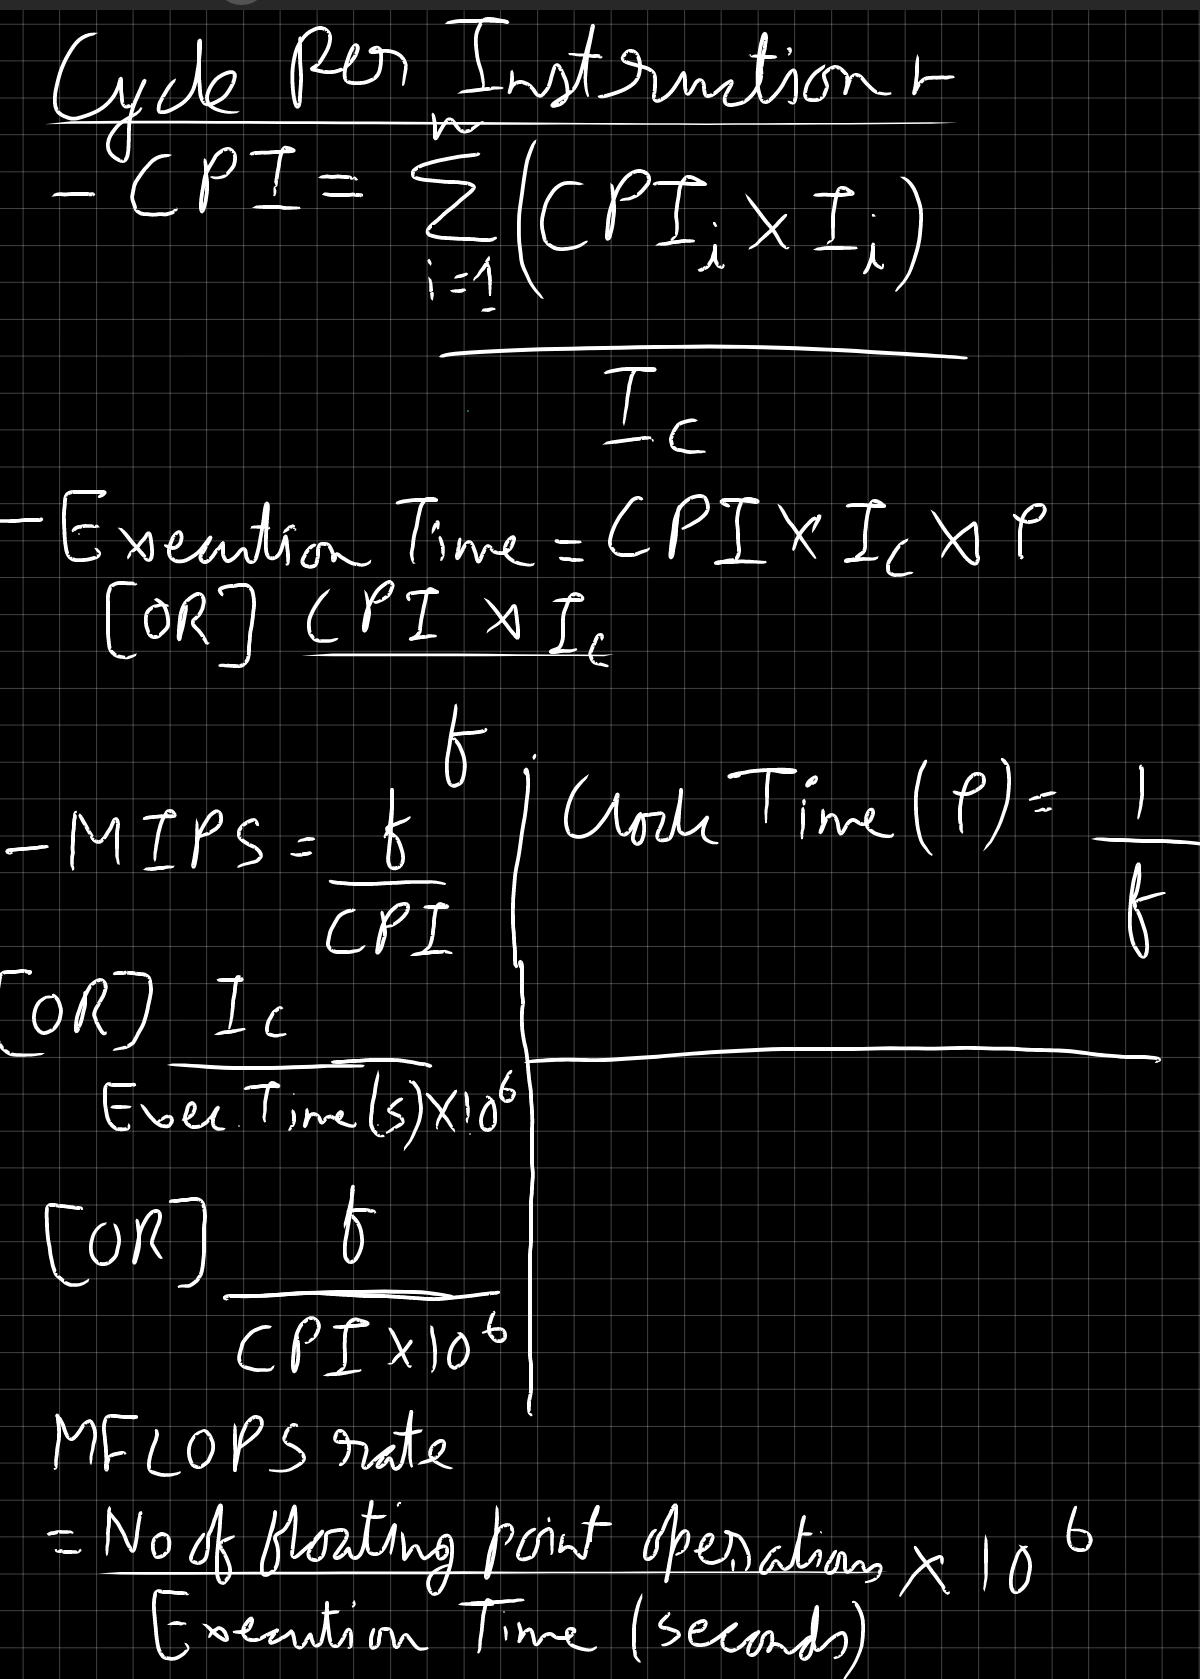 Cycle Per Instruction :-
- CPI = n
∑ (CPIi × Ii)
i=1
Ic
- Execution Time = CPI × Ic × P
[OR] CPI × Ic
f
- MIPS = f
CPI
[OR] Ic
Exec Time(s) × 10^6
[OR] f
CPI × 10^6
Clock Time (P) = 1
f
MFLOPS rate
= No of floating point operations × 10^6
Execution Time (seconds)